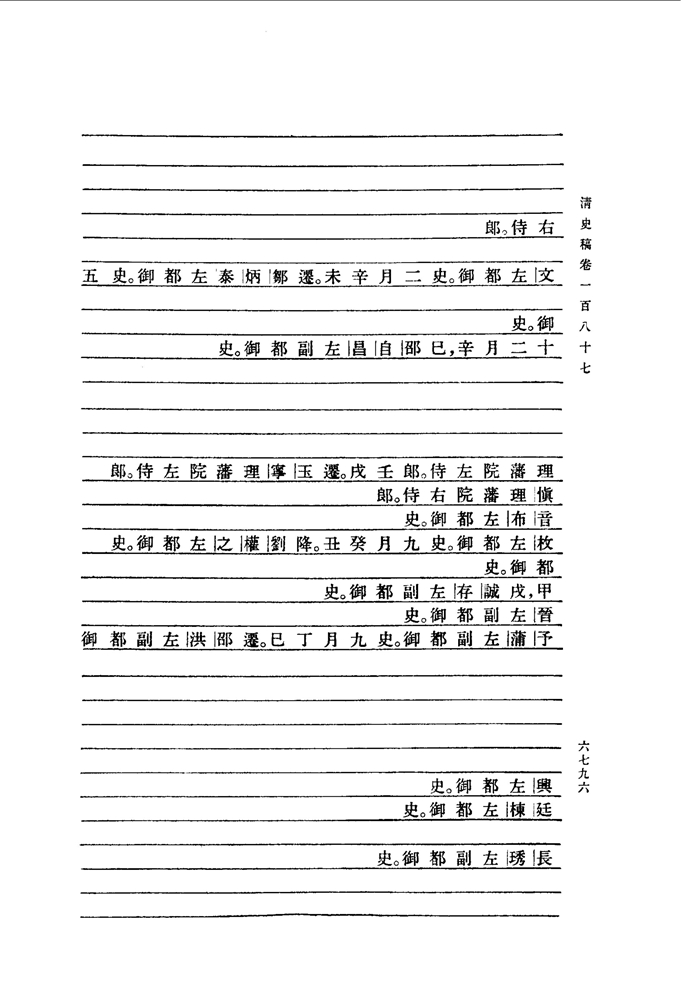 清史稿卷一百八十七
右侍郎。
文左都御史。二月辛未遷。鄒炳泰左都御史。五
御史。
十二月辛巳,邵自昌左副都御史。
理藩院左侍郎。壬戌遷。玉寧理藩院左侍郎。
愼理藩院右侍郎。
音布左都御史。
枚左都御史。九月癸丑降。劉權之左都御史。
都御史。
甲戌,誠存左副都御史。
晉左副都御史。
予蒲左副都御史。九月丁巳遷。邵洪左副都御
興左都御史。
廷棟左都御史。
長琇左副都御史。
六七九六